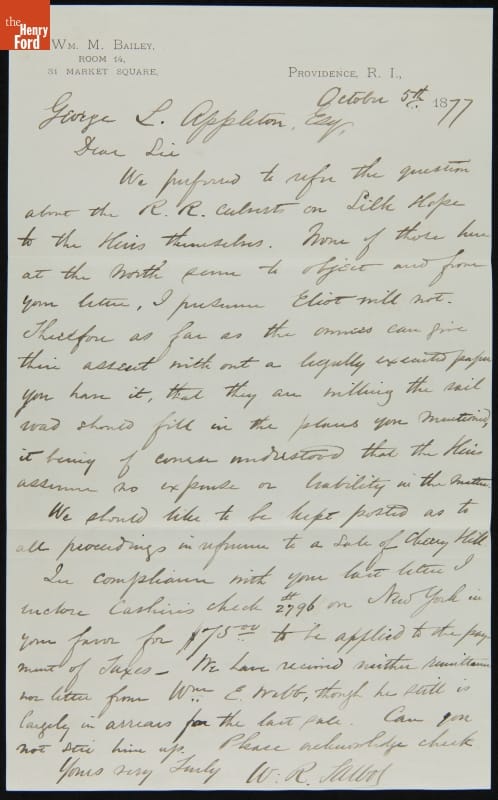 the
Henry
Ford
WM. M. BAILEY,
ROOM 14,
31 MARKET SQUARE,
PROVIDENCE, R. I.,
October 5th 1877
George L. Appleton, Esq,
Dear Sir
We preferred to refer the question
about the R. R. culverts on Silk Hope
to the Heirs themselves. None of those here
at the North seem to object and from
your letter, I presume Eliot will not.
Therefore as far as the owners can give
their assent without a legally executed paper
you have it, that they are willing the rail
road should fill in the places you mentioned
it being of course understood that the Heirs
assume no expense or liability in the matter
We should like to be kept posted as to
all proceedings in reference to a Sale of Cherry Hill
In compliance with your last letter I
inclose Cashiers check #2796 on New York in
your favor for $75 00 to be applied to the pay
ment of Taxes – We have received neither remittance
nor letter from Wm E. Webb, though he still is
largely in arrears for the last sale. Can you
not stir him up. Please acknowledge check
Yours very truly W. R. Talbot